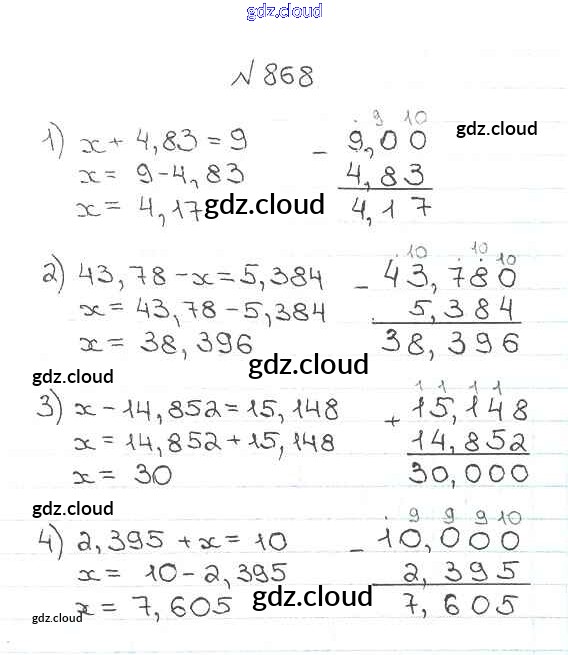 gdz.cloud
№ 868
1) x + 4,83 = 9
x = 9 - 4,83
x = 4,17
. 9 10
- 9,00
4,83
4,17
gdz.cloud
gdz.cloud
2) 43,78 - x = 5,384
x = 43,78 - 5,384
x = 38,396
. 10 . 10 . 10
- 43,780
5,384
38,396
gdz.cloud
gdz.cloud
3) x - 14,852 = 15,148
x = 14,852 + 15,148
x = 30
1 1 1 1
+ 15,148
14,852
30,000
gdz.cloud
4) 2,395 + x = 10
x = 10 - 2,395
x = 7,605
. 9 9 9 10
- 10,000
2,395
7,605
gdz.cloud
gdz.cloud